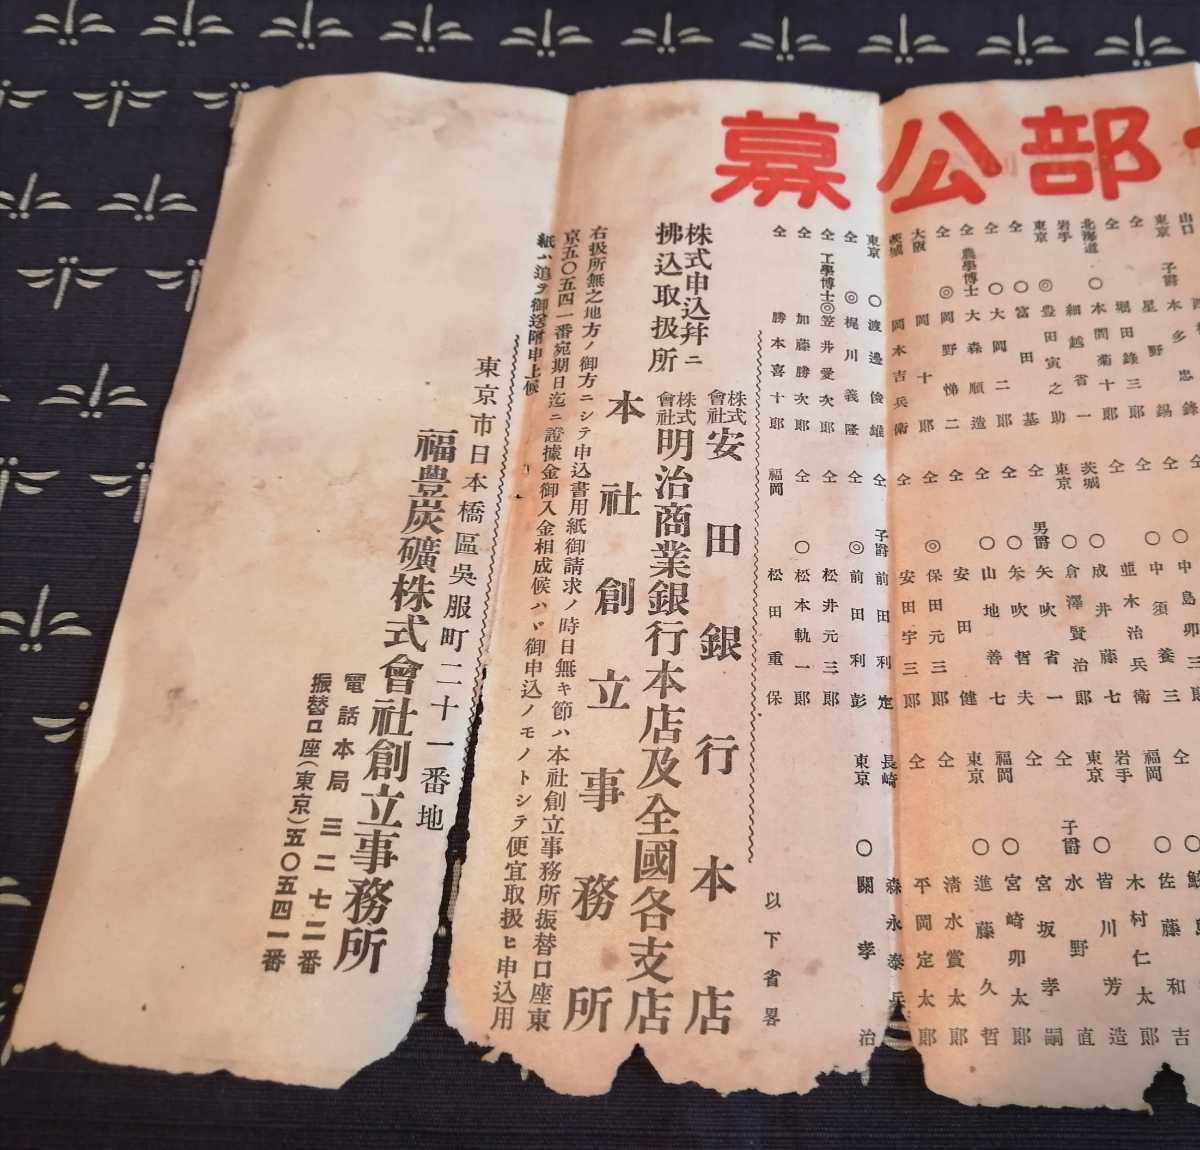 部公募
山口
東京 子爵 本多忠鋒
仝 星野錫
仝 堀田錄三郎
北海道 ○本間菊十郎
岩手 細越省一
東京 ◎豊田寅之助
仝 ○富田基
仝 ○大岡二郎
仝 農學博士 大森順造
仝 ◎岡野悌二
大阪 岡十郎
茨城 岡本吉兵衛
東京 ○渡邊俊雄
仝 ◎梶川義隆
仝 工學博士◎笠井愛次郎
仝 加藤勝次郎
仝 勝本喜十郎
仝 中島卯三郎
仝 ○中須養三
仝 並木治兵衛
茨城 ○成井藤七
東京 ○倉澤賢治郎
仝 男爵 矢吹省一
仝 ○矢吹哲夫
仝 ○山地善七
仝 安田健
仝 ◎保田元三郎
仝 安田宇三郎
仝 子爵 前田利定
仝 ◎前田利彭
仝 松井元三郎
仝 ○松本軌一郎
福岡 松田重保
福岡 ○佐藤和吉
岩手 木村仁太郎
東京 ○皆川芳造
仝 子爵 水野直
仝 宮坂孝嗣
福岡 ○宮崎卯太郎
東京 ○進藤久哲
仝 清水賞太郎
仝 平岡定太郎
長崎 森永泰兵
東京 ○關孝治
以下省畧
株式申込幷ニ
拂込取扱所
株式會社 安田銀行本店
株式會社 明治商業銀行本店及全國各支店
本社創立事務所
右扱所無之地方ノ御方ニシテ申込書用紙御請求ノ時日無キ節ハ本社創立事務所振替口座東
京五〇五四一番宛期日迄ニ證據金御入金相成候ハヾ御申込ノモノトシテ便宜取扱ヒ申込用
紙ハ追テ御送附申上候
東京市日本橋區吳服町二十一番地
福豊炭礦株式會社創立事務所
電話本局三二七二番
振替口座(東京)五〇五四一番